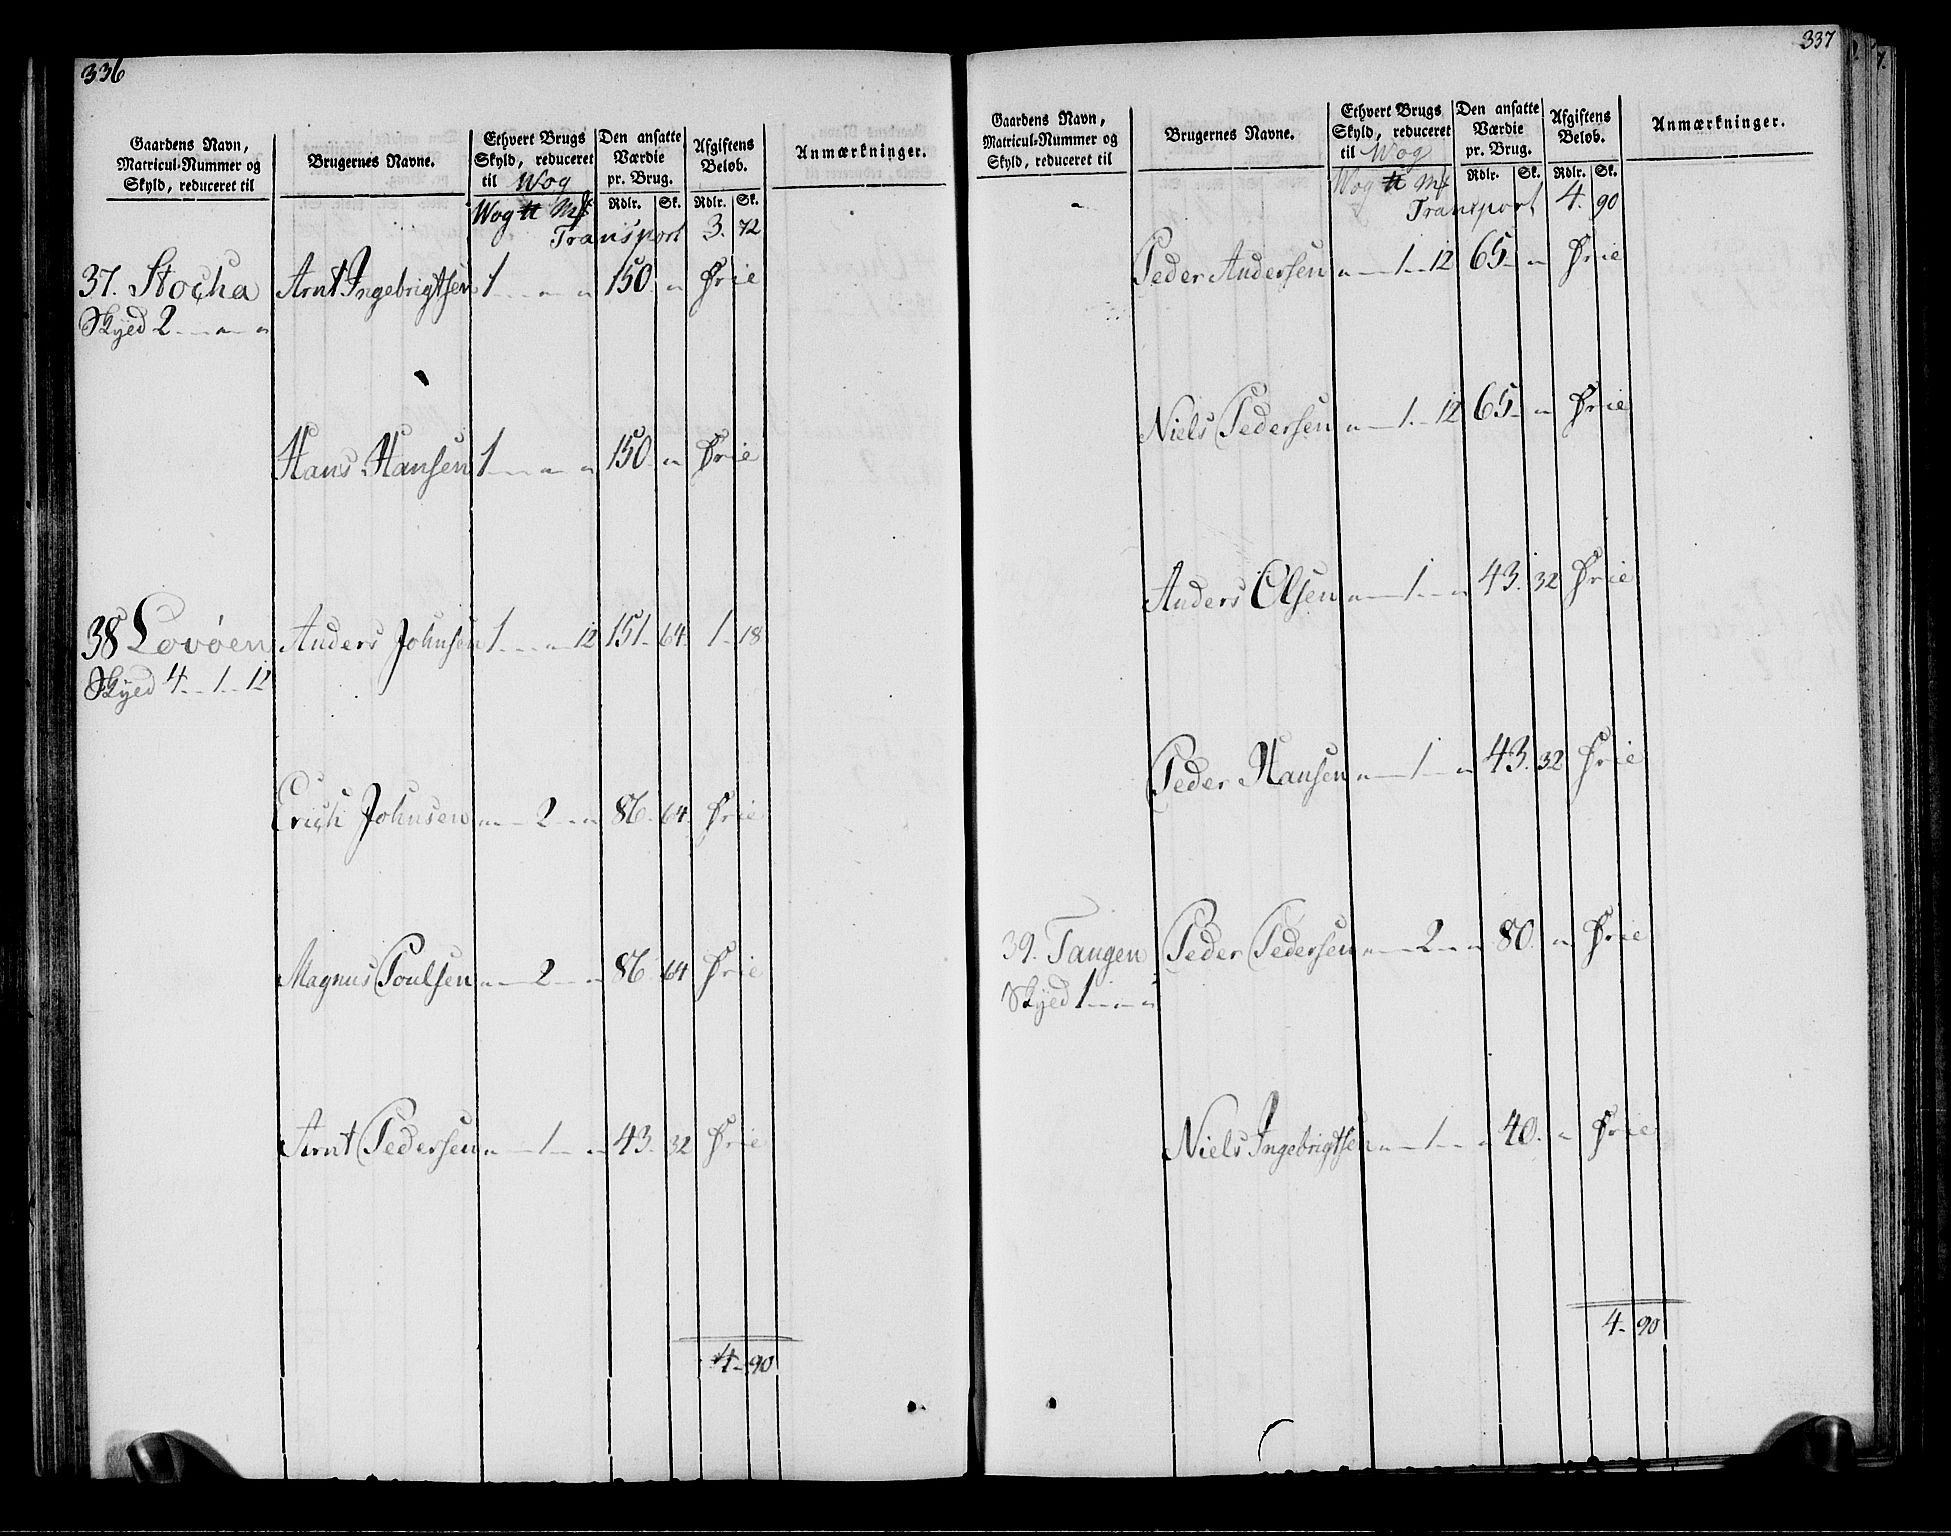 336
Gaardens Navn, Matricul-Nummer og Skyld, reduceret til
Brugernes Navne.
Ethvert Brugs Skyld, reduceret til Wog
Den ansatte Værdie pr. Brug.
Afgiftens Beløb.
Anmærkninger.
Rdlr. Sk. Rdlr. Sk.
Wog ℔ Mk
Transport 3. 72
37. Stocha Arnt Ingebrigtsen 1 - „ - „ 150. „ Frie
Skyed 2 - „ - „
Hans Hansen 1 - „ - „ 150. „ Frie
38 Lovøen Anders Johnsen 1 - „ - 12 151 - 64. 1 - 18
Skyed 4 - 1 - 12
Erich Johnsen „ - 2 - „ 86. 64. Frie
Magnus Poulsen „ - 2 - „ 86. 64 Frie
Arnt Pedersen „ - 1 - „ 43. 32 Frie
4 - 90
337
Gaardens Navn, Matricul-Nummer og Skyld, reduceret til
Brugernes Navne.
Ethvert Brugs Skyld, reduceret til Wog
Den ansatte Værdie pr. Brug.
Afgiftens Beløb.
Anmærkninger.
Rdlr. Sk. Rdlr. Sk.
Wog ℔ Mk
Transport 4. 90
Peder Andersen „ - 1 - 12 65 - „ Frie
Niels Pedersen „ - 1 - 12 65 - „ Frie
Anders Olsen „ - 1 - „ 43. 32 Frie
Peder Hansen „ - 1 - „ 43. 32 Frie
39. Tangen Peder Pedersen „ - 2 - „ 80. „ Frie
Skyed 1 - „ - „
Niels Ingebrigtsen „ - 1 - „ 40. „ Frie
4 - 90